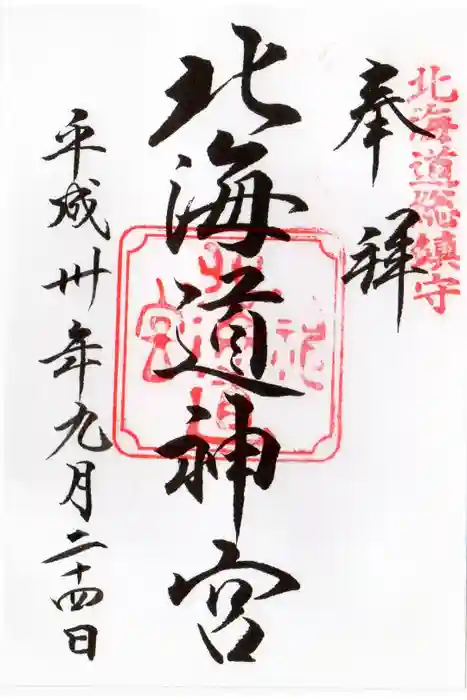 北海道総鎮守
奉拝
北海道神宮
平成卅年九月二十四日